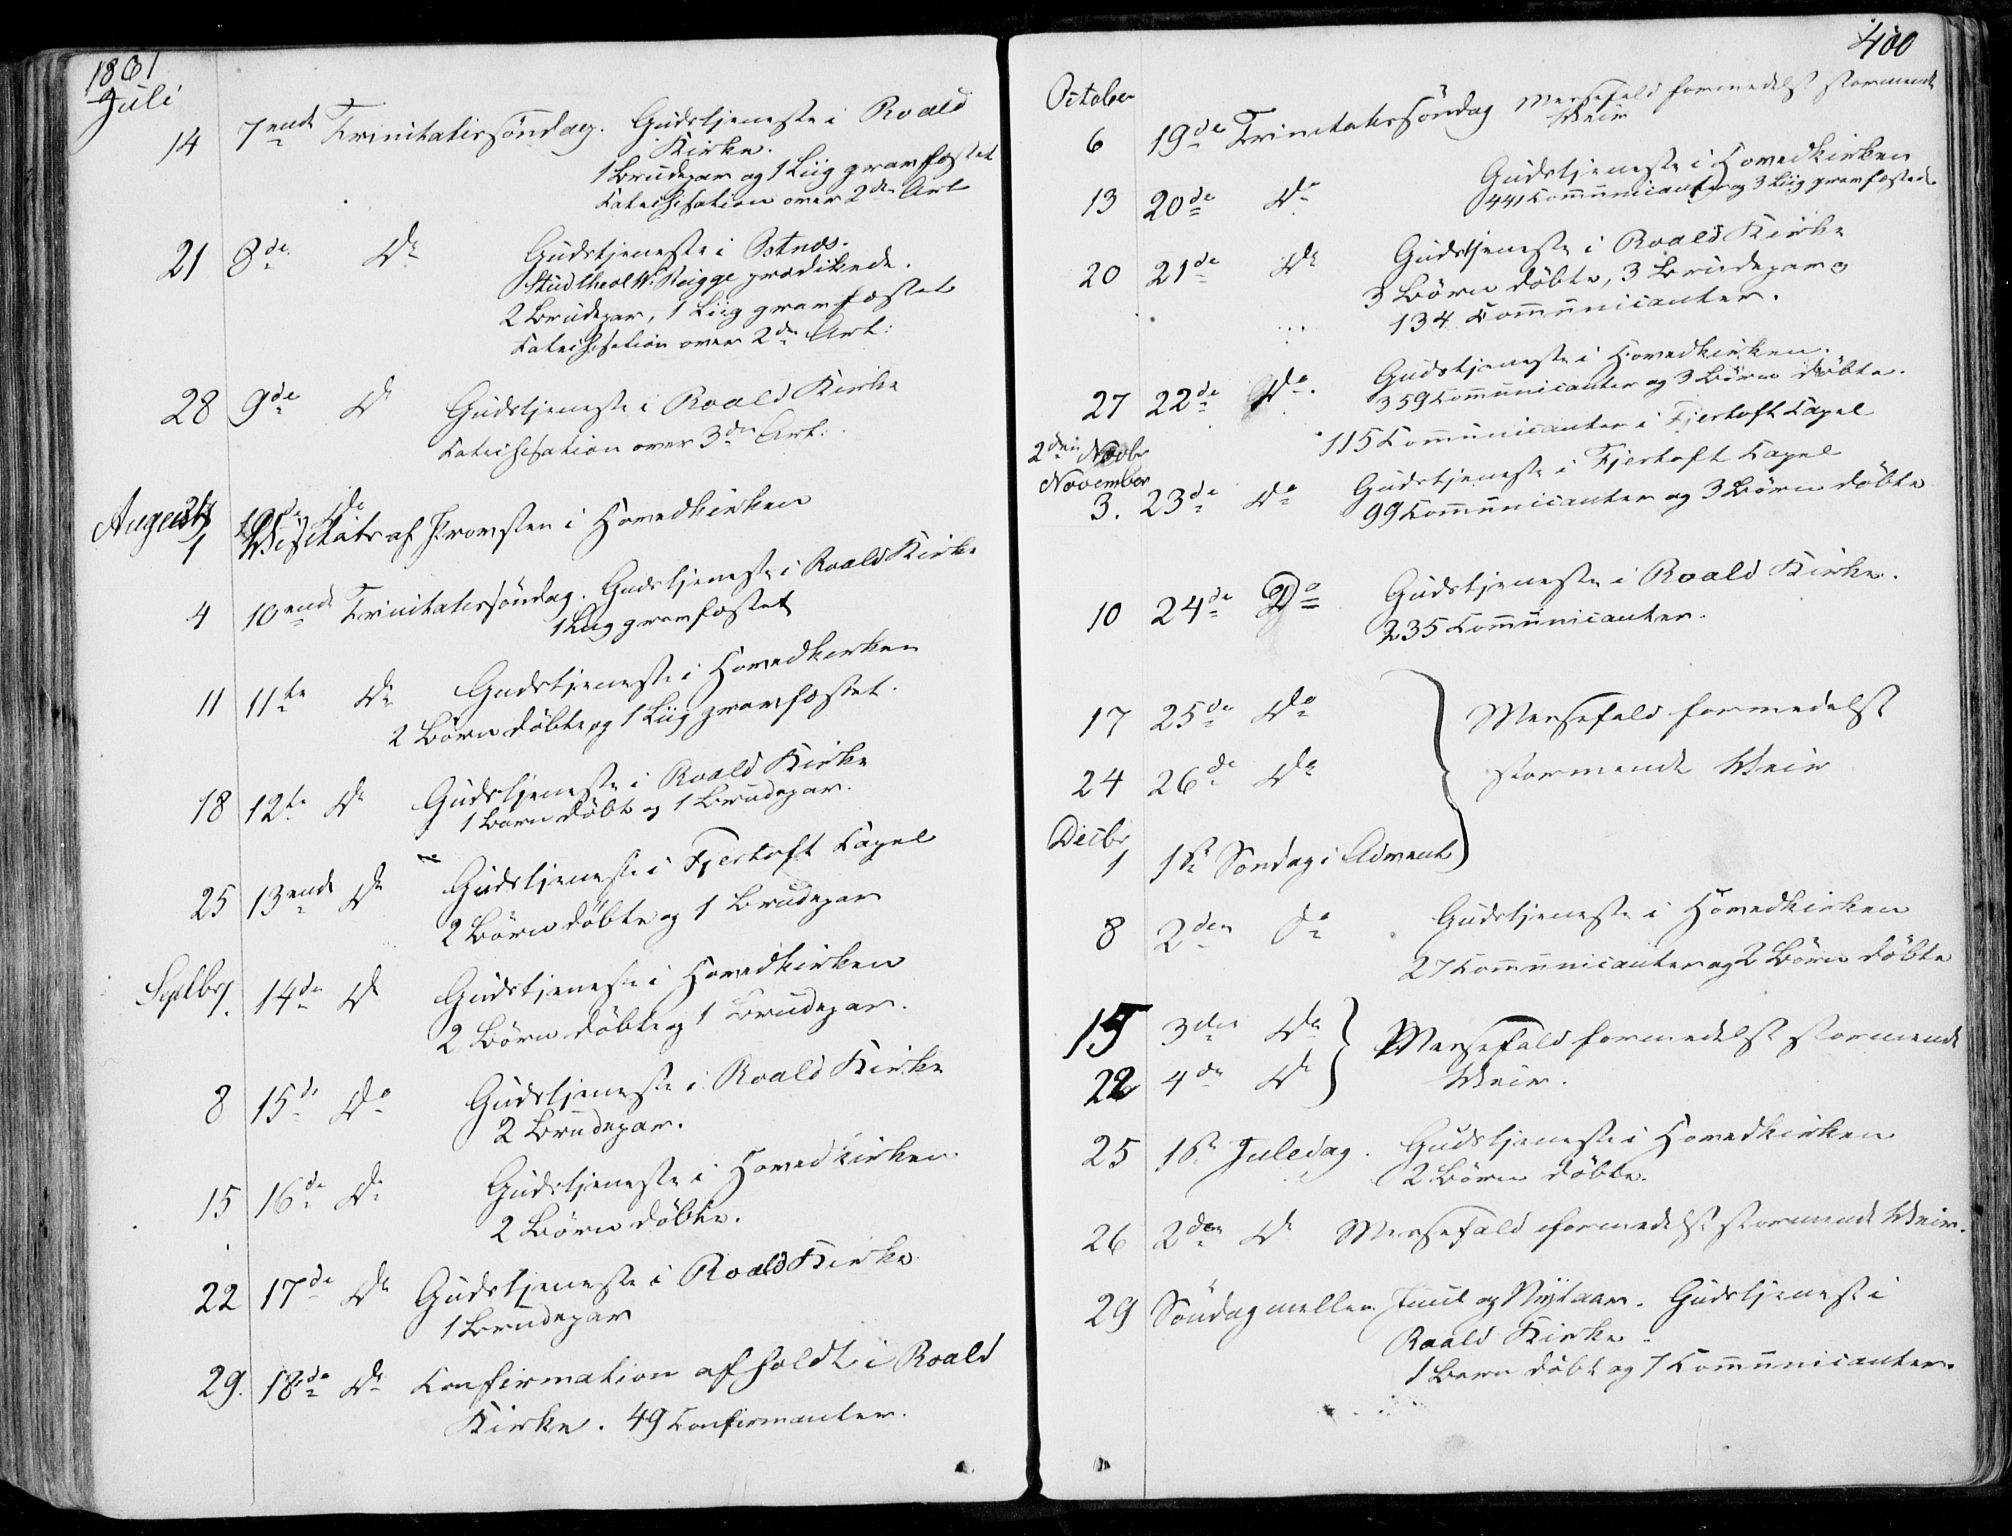 1861
Juli
14 7ende Trinitatissøndag. Gudstjeneste i Roald
Kirke.
1 Brudepar og 1 Liig gravfæstet
Catechisation over 2den Art
21 8de Do Gudstjeneste i Østnæs.
Stud theol prædikede.
2 Brudepar, 1 Liig gravfæstet
Catechisation over 2den Art:
28 9de Do Gudstjeneste i Roald Kirke
Catechisation over 3die Art:
August
1 Visitats af Provsten i Hovedkirken
4 10ende Trinitatissøndag. Gudstjeneste i Roald Kirke
1 Liig gravfæstet
11 11te Do Gudstjeneste i Hovedkirken
2 Børn døbte og 1 Liig gravfæstet.
18 12te Do Gudstjeneste i Roald Kirke
1 Barn døbt og 1 Brudepar.
25 13ende Do Gudstjeneste i Fjertoft Capel
2 Børn døbte og 1 Brudepar
Septbr 1. 14de Do Gudstjeneste i Hovedkirken
2 Børn døbte og 1 Brudepar.
8 15de Do Gudstjeneste i Roald Kirke
2 Brudepar.
15 16de Do Gudstjeneste i Hovedkirken.
2 Børn døbte.
22 17de Do Gudstjeneste i Roald Kirke
1 Brudepar
29. 18de Do Confirmation afholdt i Roald
Kirke. 49 Confirmanter.
400
October
6 19de Trinitatissøndag Messefald formedelst stormende
Veir
13 20de Do Gudstjeneste i Hovedkirken
441 Communicanter og 3 Liig gravfæstede
20 21de Do Gudstjeneste i Roald Kirke
3 Børn døbte, 3 Brudepar og
134 Communicanter.
27 22de Do. Gudstjeneste i Hovedkirken.
359 Communicanter og 3 Børn døbte.
2den Novbr 115 Communicanter i Fjertoft Capel
November
3. 23de Do Gudstjeneste i Fjertoft Capel
99 Communicanter og 3 Børn døbte
10 24de Do Gudstjeneste i Roald Kirke.
235 Communicanter.
17 25de Do Messefald formedelst
24 26de Do stormende Veir
Decbr
1 1ste Søndag i Advent
8 2den Do Gudstjeneste i Hovedkirken
27 Communicanter og 2 Børn døbte
15 3die Do Messefald formedelst stormende
22 4de Do Veir.
25 1ste Juledag. Gudstjeneste i Hovedkirken
2 Børn døbte.
26 2den Do Messefald formedelst stormende Veir.
29 Søndag mellem Juul og Nytaar. Gudstjeneste i
Roald Kirke.
1 Barn døbt og 7 Communicanter.